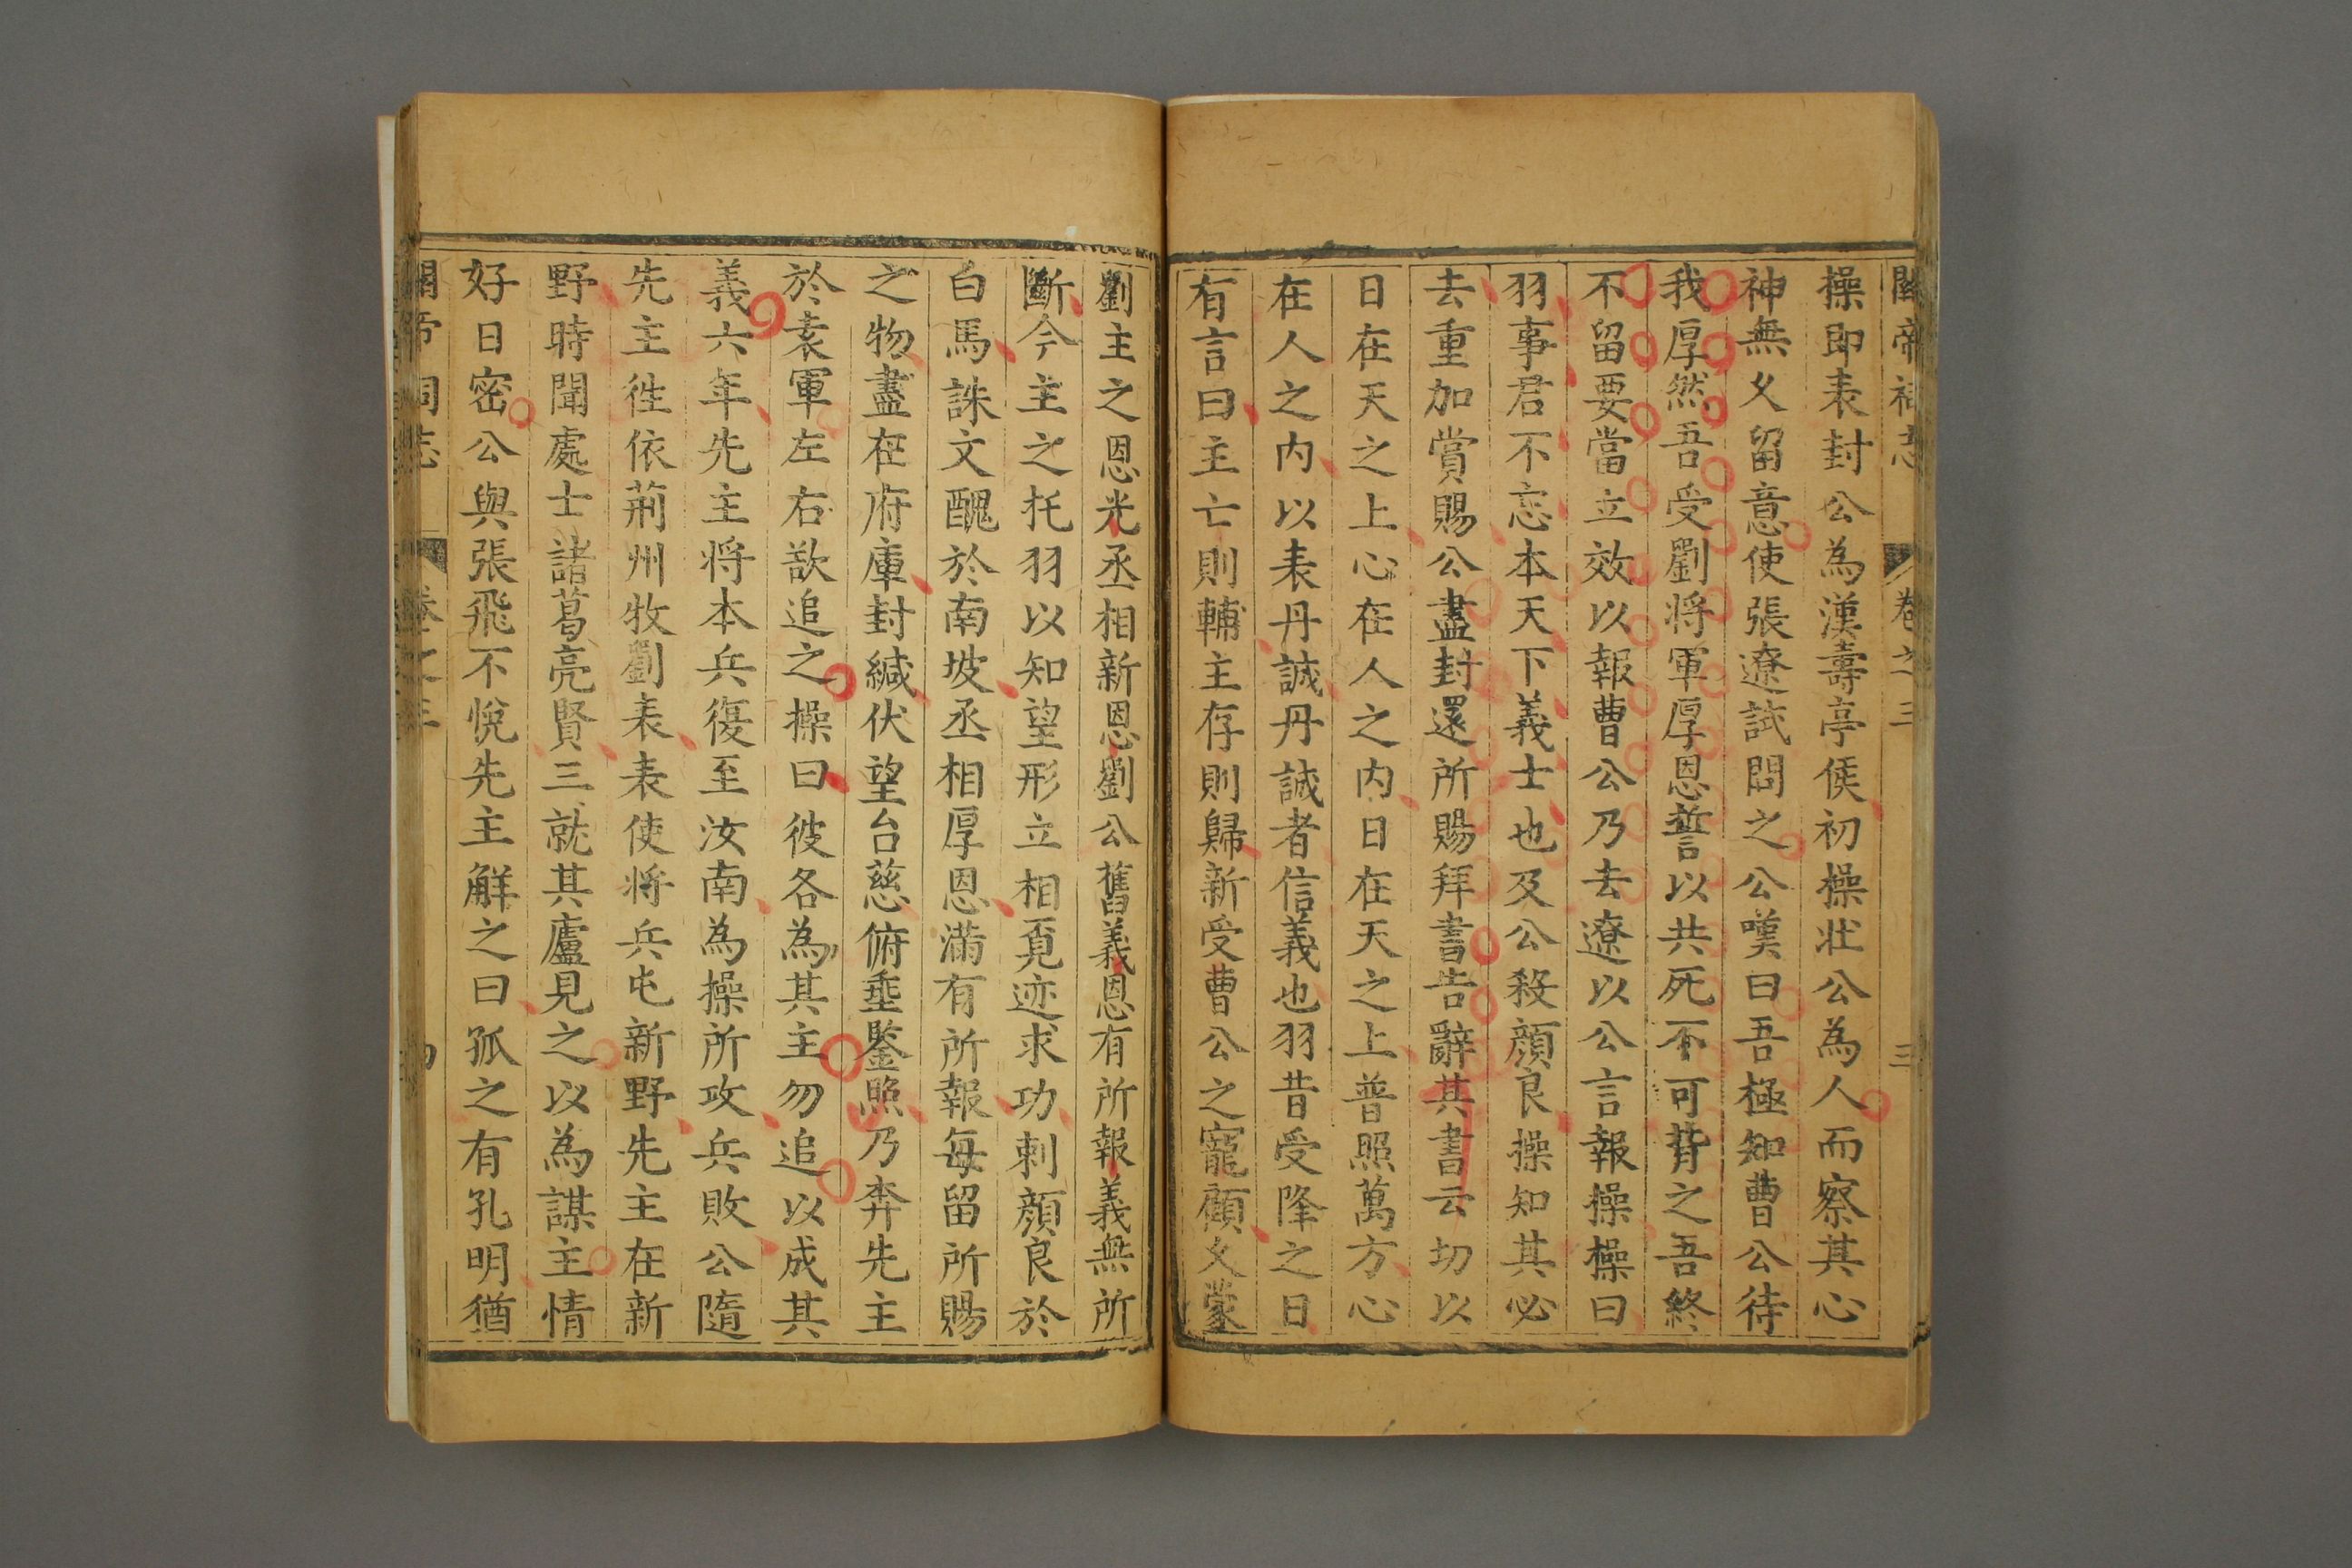 關帝祠志 卷之三 三
操即表封公為漢壽亭侯初操壯公為人而察其心
神無乆留意使張遼試問之公嘆曰吾極知曹公待
我厚然吾受劉将軍厚恩誓以共死不可背之吾終
不留要當立效以報曹公乃去遼以公言報操操曰
羽事君不忘本天下義士也及公殺顔良操知其必
去重加賞賜公盡封還所賜拜書告辭其書云切以
日在天之上心在人之内日在天之上普照萬方心
在人之内以表丹誠丹誠者信義也羽昔受降之日
有言曰主亡則輔主存則歸新受曹公之寵顧乆蒙
劉主之恩光丞相新恩劉公舊義恩有所報義無所
斷今主之托羽以知望形立相覔迹求功刺顔良於
白馬誅文醜於南坡丞相厚恩滿有所報每留所賜
之物盡在府庫封緘伏望台慈俯垂鑒照乃奔先主
於袁軍左右欲追之操曰彼各為其主勿追以成其
義六年先主将本兵復至汝南為操所攻兵敗公隨
先主徃依荊州牧劉表表使将兵屯新野先主在新
野時聞處士諸葛亮賢三就其廬見之以為謀主情
好日密公與張飛不悅先主解之曰孤之有孔明猶
關帝祠志 卷之三